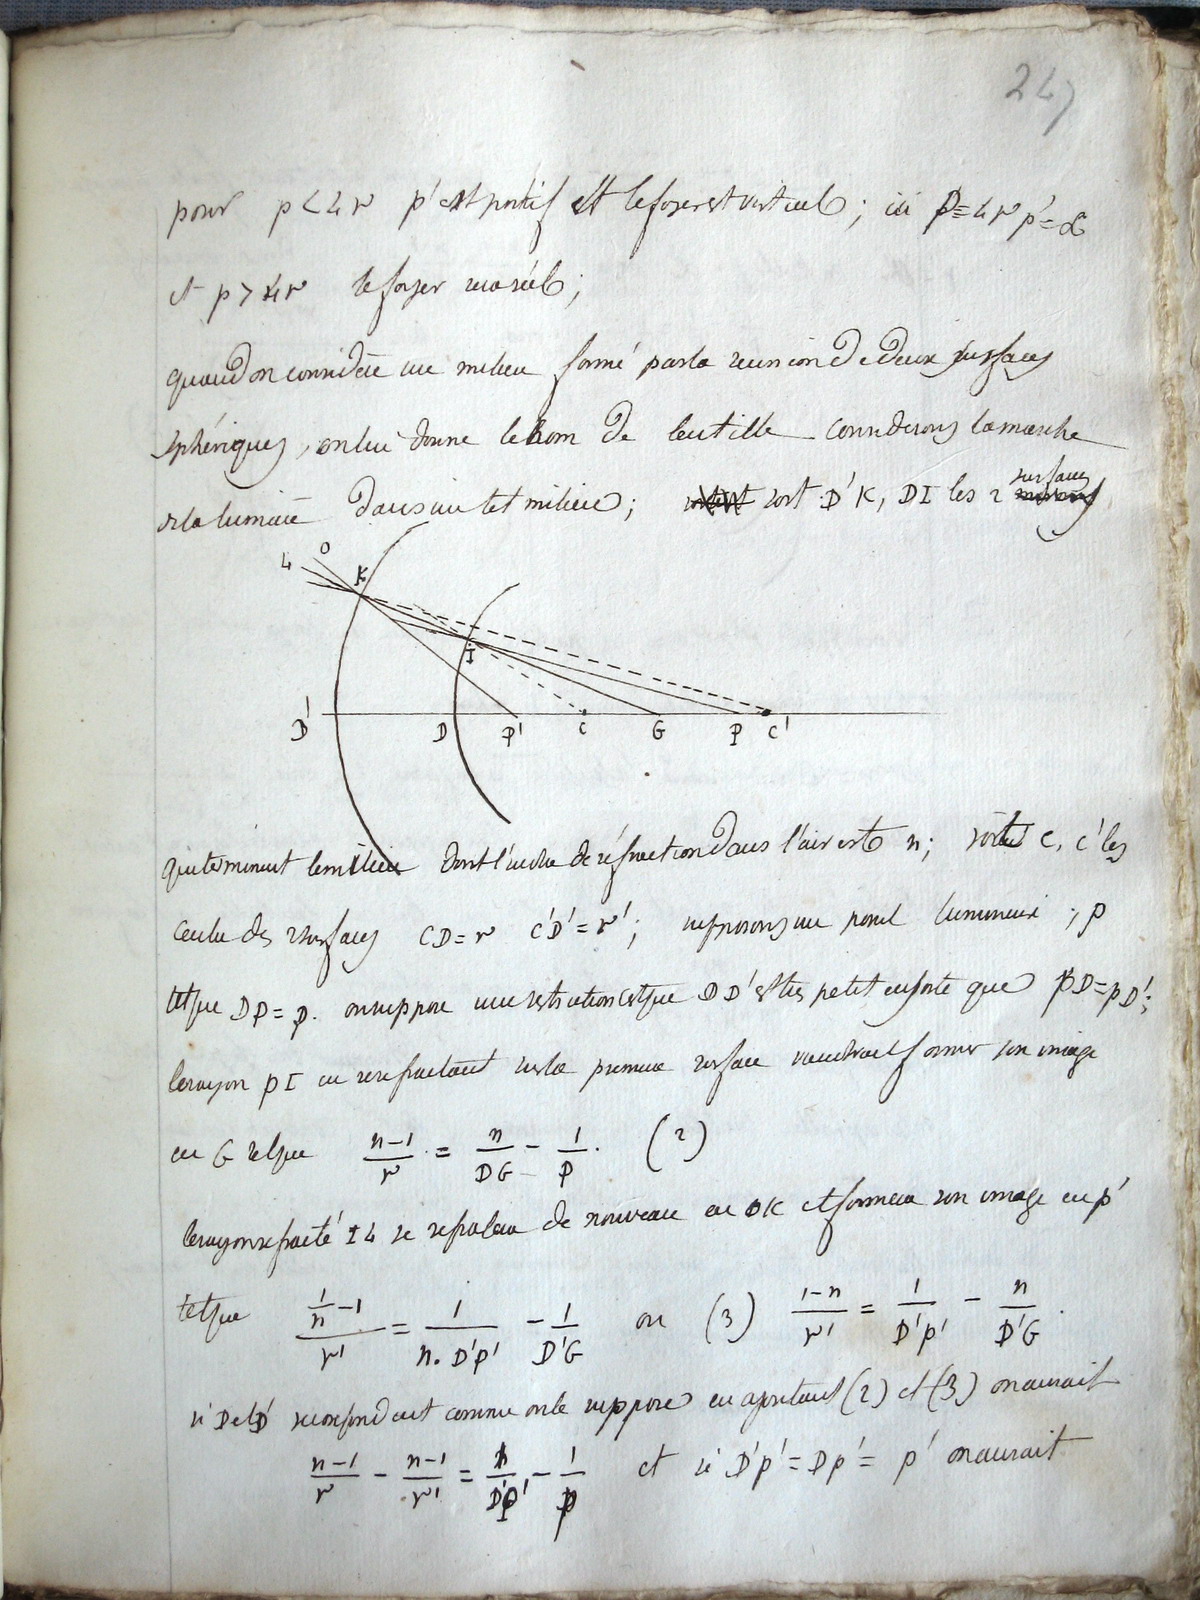 247
pour p < 4r p' est positif et le foyer est virtuel ; si p = 4r p' = ∞
et p > 4r le foyer sera réel ;
quand on considère un milieu formé par la reunion de deux surfaces
sphériques, on lui donne le nom de lentille considerons la marche
de la lumière dans un tel milieu ; soit D'K, DI les 2 surfaces
L O K
I
D' D P' C G P C'
qui terminent le milieu dont l'indice de réfraction dans l'air est n ; soient C, C' les
centre des 2 surfaces CD = r C'D' = r' ; supposons un point lumineux ; p
tel que DP = p. on suppose une restriction est que DD' est très petit en sorte que PD = PD' ;
le rayon pI en se refractant sur la premiere surface viendrait former son image
en G tel que (n-1)/r = n/DG - 1/p. (2)
le rayon refracté IL se refractera de nouveau en OK et formera son image en p'
tel que (1/n - 1)/r' = 1/(n. D'p') - 1/D'G ou (3) (1-n)/r' = 1/D'p' - n/D'G.
si D et D' se confondent comme on le suppose en ajoutant (2) et (3) on aurait
(n-1)/r - (n-1)/r' = 1/D'P' - 1/p et si D'p' = Dp' = p' on aurait